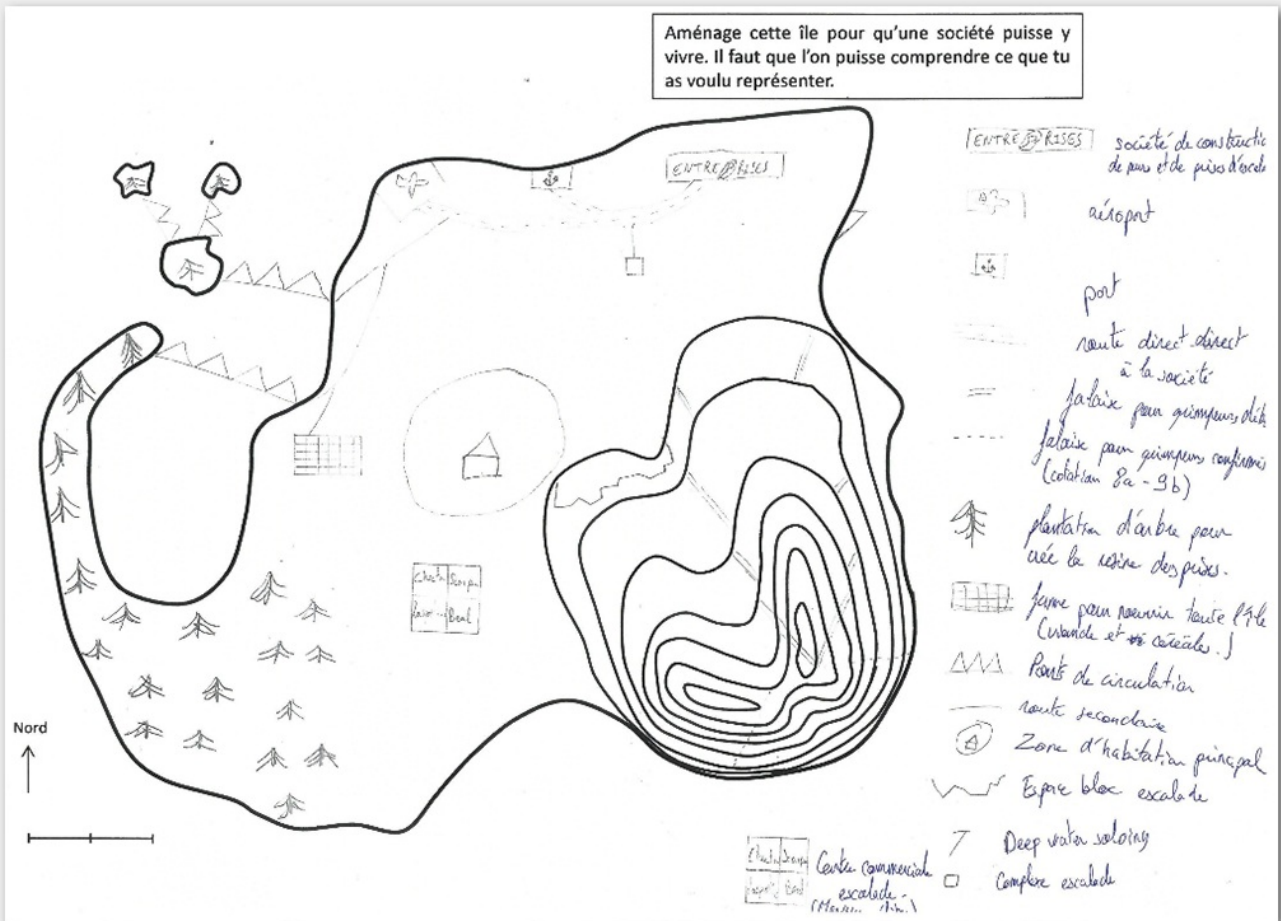 Aménage cette île pour qu'une société puisse y
vivre. Il faut que l'on puisse comprendre ce que tu
as voulu représenter.
ENTRE PRISES
ENTRE PRISES
société de constructio
de murs et de prises d'escala
aéroport
port
route direct direct
à la société
falaise pour grimpeurs
falaise pour grimpeurs confirmés
(cotation 8a - 9b)
plantation d'arbre pour
crée la résine des prises.
ferme pour nourrir toute l'île
(viande et céréales.)
Ponts de circulation
route secondaire
Zone d'habitation principal
Espace bloc escalade
Deep water soloing
Complexe escalade
Beal
Nord
Beal
Centre commerciale
escalade.